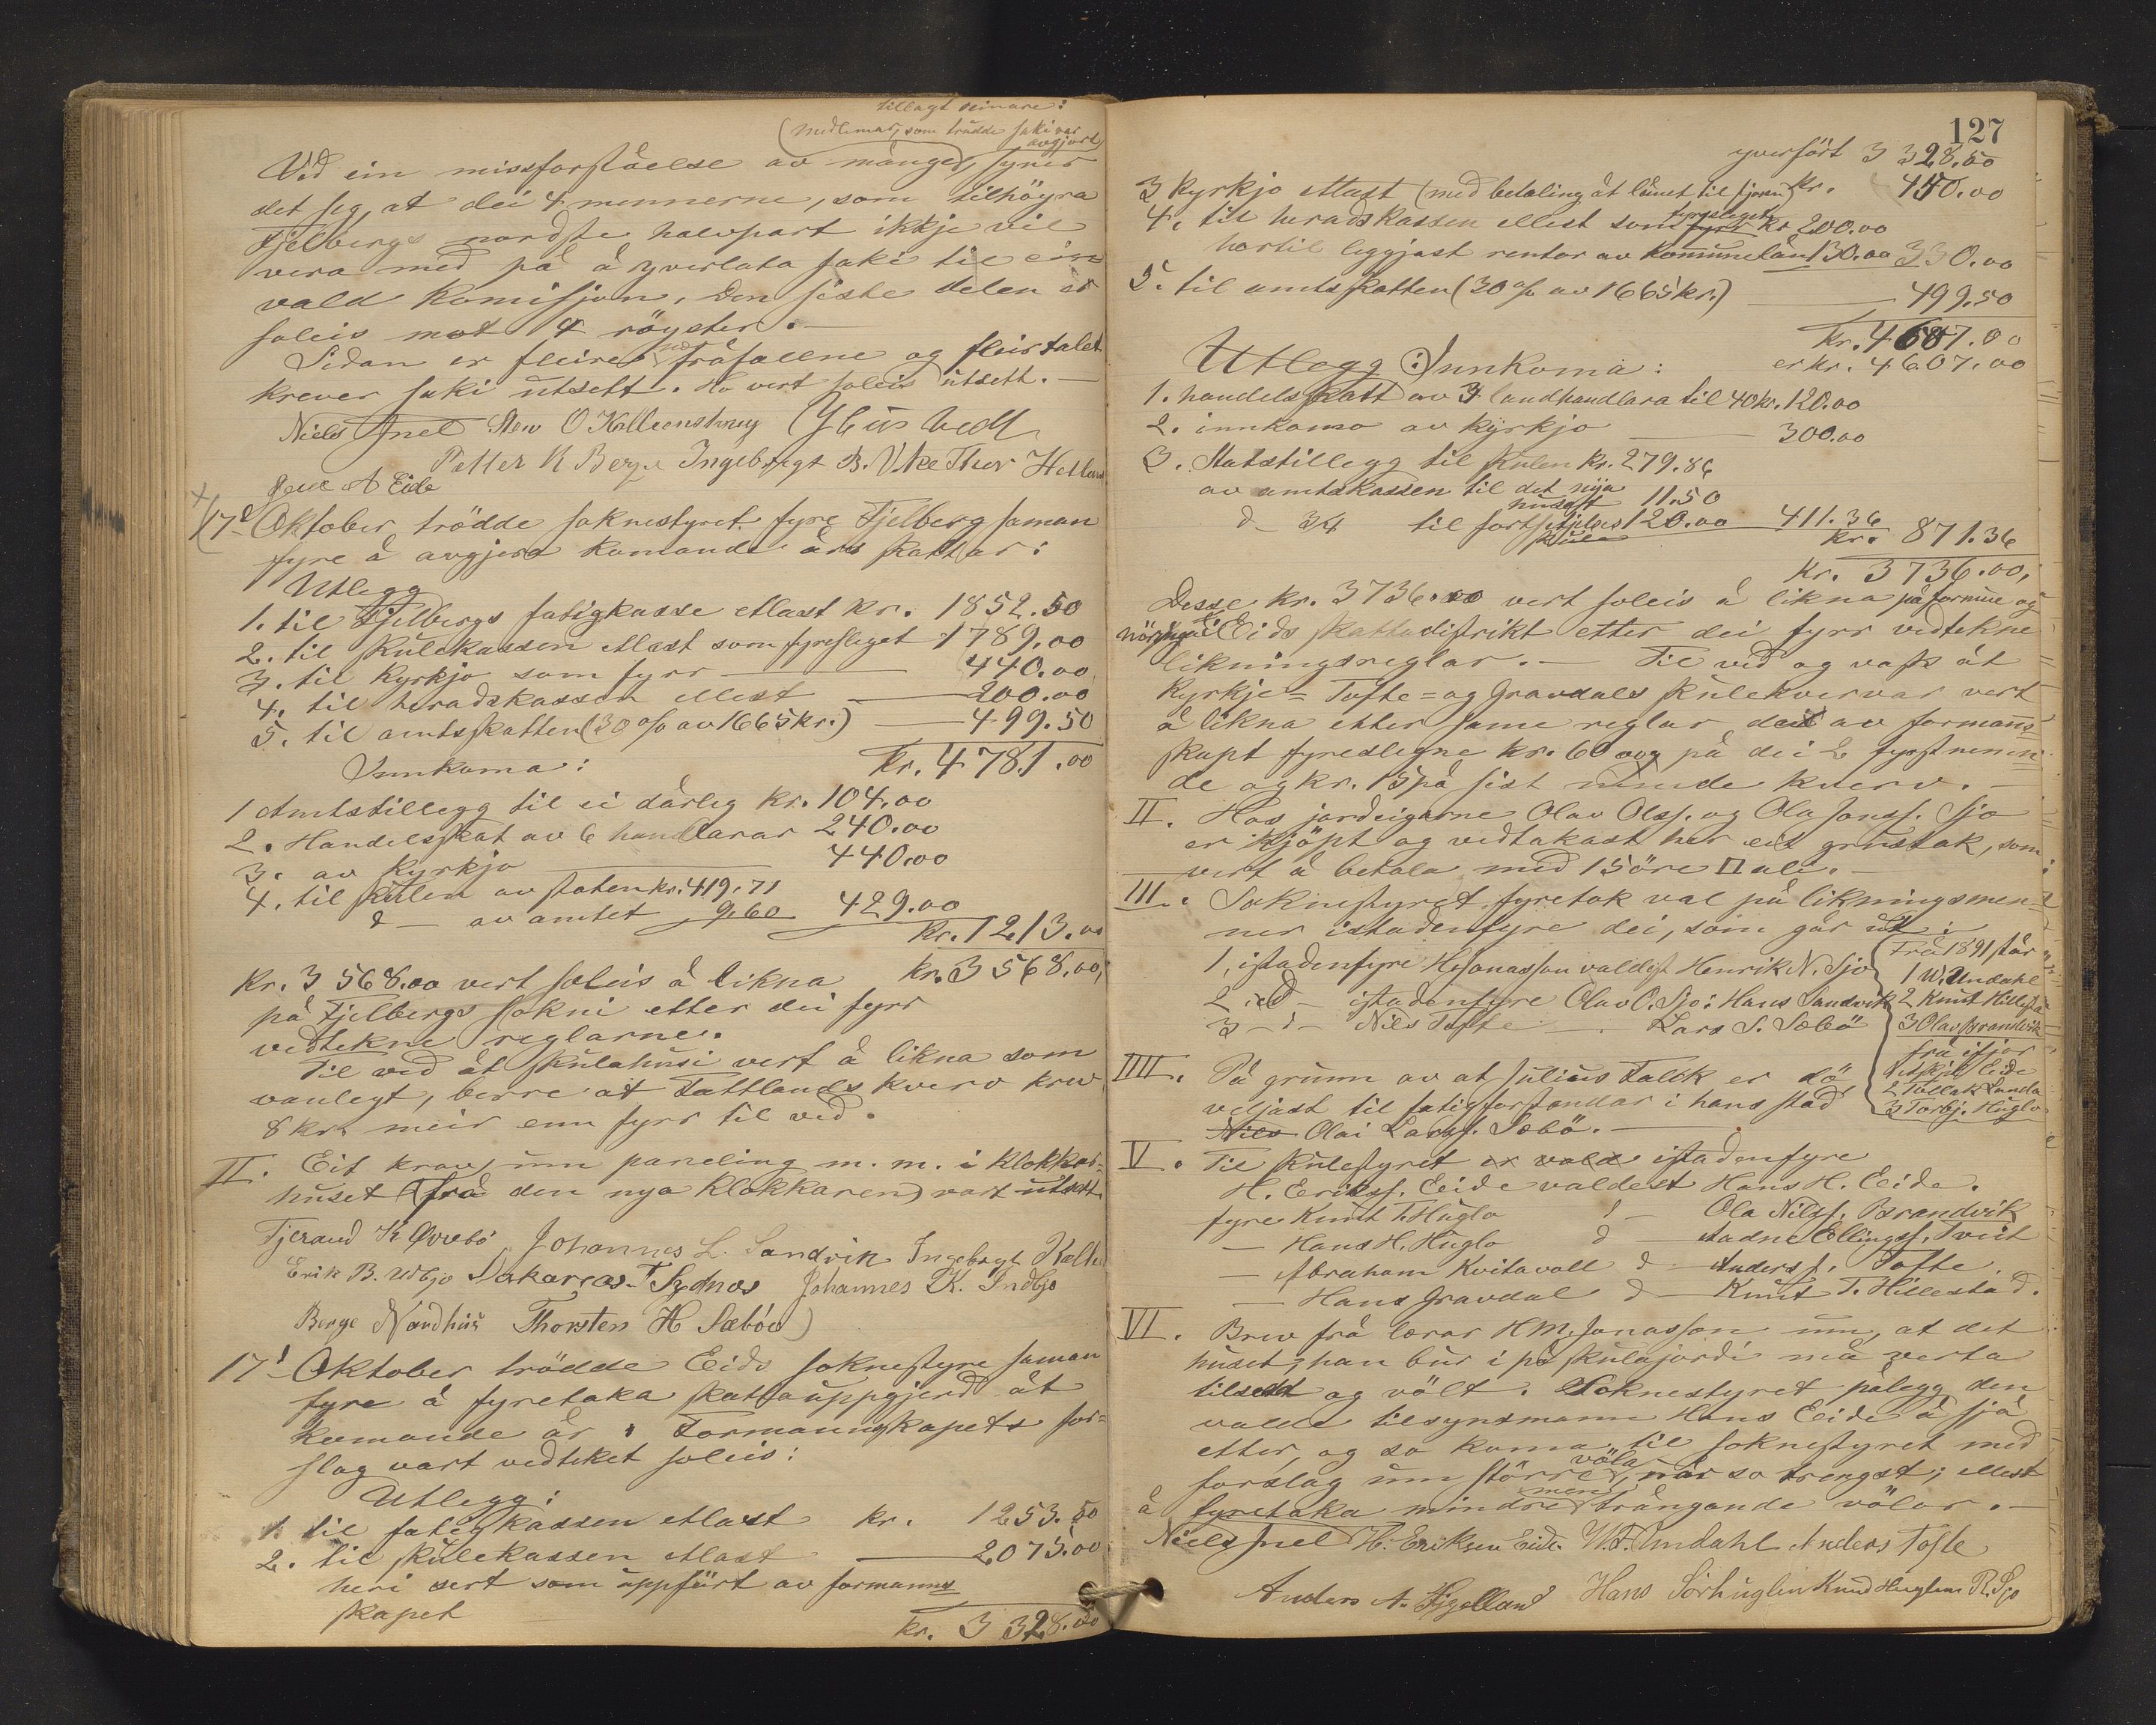 tillagt seinare:
(medlemar, som trådde saki var
avgjort)
Vid ein missforståelse av mange, syner
det seg, at dei 4 mennerne, som tilhöyra
Fjelbergs nordste halvpart ikkje vil
vera med på å yverlata saki til ein
vald komisjon. Den siste delen er
soleis mot 14 röyster.
Sidan er fleire fråfallne og fleirtalet
krever saki utsett. Ho vert soleis utsett.
Niels Juel
Petter K Berge Ingebrigt B. Uke Thor Hetland
A Eide
17d Oktober trödde soknestyret fyre Fjelberg saman
fyre å avgjera komande års skattar:
Utlegg
1. til Fjelbergs fatigkasse ellast kr. 1852.50
2. til skulekassen ellast som fyresleget 1789.00
3. til kyrkjo som fyrr 440.00
4. til heradskassen ellest 200.00
5. til amtsskatten (30 % av 1665 kr.) 499.50
Innkoma: kr. 4781.00
1 Amtstillegg til ei dårleg kr. 104.00
2. Handelsskat av 6 handlarar 240.00
3. av kyrkjo 440.00
4. til skulen av staten kr. 419.71
d — av amtet 9.60 429.00
kr. 1213.00
kr. 3568.00 vert soleis å likna kr. 3568.00,
på Fjelbergs sokni etter dei fyrr
vedtekne reglarne.
Til ved åt skulahusi vert å likna som
vanlegt, berre at Tattlands kverv krev
8 kr. meir enn fyrr til ved.
II. Eit krav um paneling m. m. i klokkar-
huset (frå den nya klokkaren) vart utsett
Tjerand K Øvrebö Johannes L. Sandvik Ingebrigt
Erik B. Udbjo Sakarias T Sydnes Johannes K. Indbjo
Berge Nordhus Thorsten H Sæbö
17d Oktober trödde Eids soknestyre saman
fyre å fyretaka skattauppgjerd åt
komande år. Formannskapets for-
slag vart vedteket soleis:
Utlegg:
1. til fatigkassen ellast kr. 1253.50
2. til skulekassen ellast 2075.00
heri sert som uppfört av formanns
skapet
kr. 3328.50
127
yverfört 3328.50
3 kyrkjo ellast (med betaling åt lånet til kr. 450.00
4. til heradskassen ellest som fyresleget kr 200.00
hertil leggjast rentor av komunelån 130.00 330.00
5. til amtsskatten (30 % av 1665 kr.) 499.50
kr. 4607.00
Utlegg: Innkoma: er kr. 4607.00
1. handelsskatt av 3 landhandlara til 40 kr. 120.00
2. innkoma av kyrkjo 300.00
3. Statstillegg til skulen kr. 279.86
av amtskassen til det nya
11.50
d — 34 til fortsetjelses 120.00 411.36
skule kr. 871.36
kr. 3736.00,
Desse kr. 3736.00 vert soleis å likna på formue og
næring i Eids skattadistrikt etter dei fyrr vedtekne
likningsreglar. — Til ved og vask åt
Kyrkje- Tofte- og Gravdals skulekvervar vert
å likna etter same reglar det av formans-
skapt fyreslegne kr. 60 og på dei 2 fyrstnemn-
de og kr. 15 på sist nemnde kverv.
II. Hos jordeigarne Olav Olss. og Ola Jonss. Sjo
er kjöpt og vedtakast her eit grustak, som
vert å betala med 15 öre □ alen.
III. Soknestyret fyretok val på likningsmen-
ner istadenfyre dei, som går ut:
1. istadenfyre H. Jonasson valdest Henrik N. Sjo
2. d — istadenfyre Olav O. Sjo: Hans Sandvik
3 — d — Nils Tofte — Lars S. Sæbö
Frå 1891 står
1 W. Undahl
2 Knut Hillestad
3 Olav Brandvik
frå ifjor
1 Eide
2 Tollak Sunde
3 Torbj. Huglo
IIII. På grunn av at Julius Falck er dö
veljast til fatigforstandar i hans stad
Nils Olai Larss. Sæbö.
V. Til skulestyret er vald istadenfyre
H. Erikss. Eide valdest Hans H. Eide.
fyre Knut T. Huglo d — Ola Nilss. Brandvik
— Hans H. Huglo d — Aadne Ellingss. Tveit
— Abraham Kvitavoll d — Anders J. Tofte.
— Hans Gravdal d — Knut T. Hillestad.
VI. Brev frå lærar H M. Jonassson um, at det
huset han bur i på skulajordi må verta
tilsett og völt. Soknestyret pålegg den
valde tilsynsmann Hans Eide å sjå
etter, og so koma til soknestyret med
forslag um större völa, når so trengst; ellest
å fyretaka mindre men trångande völar.
Niels Juel H. Eriksen Eide W. F. Undahl Anders Tofte
Anders A. Hjgelland Hans Sörhuglen Knud Huglen R. Sjo